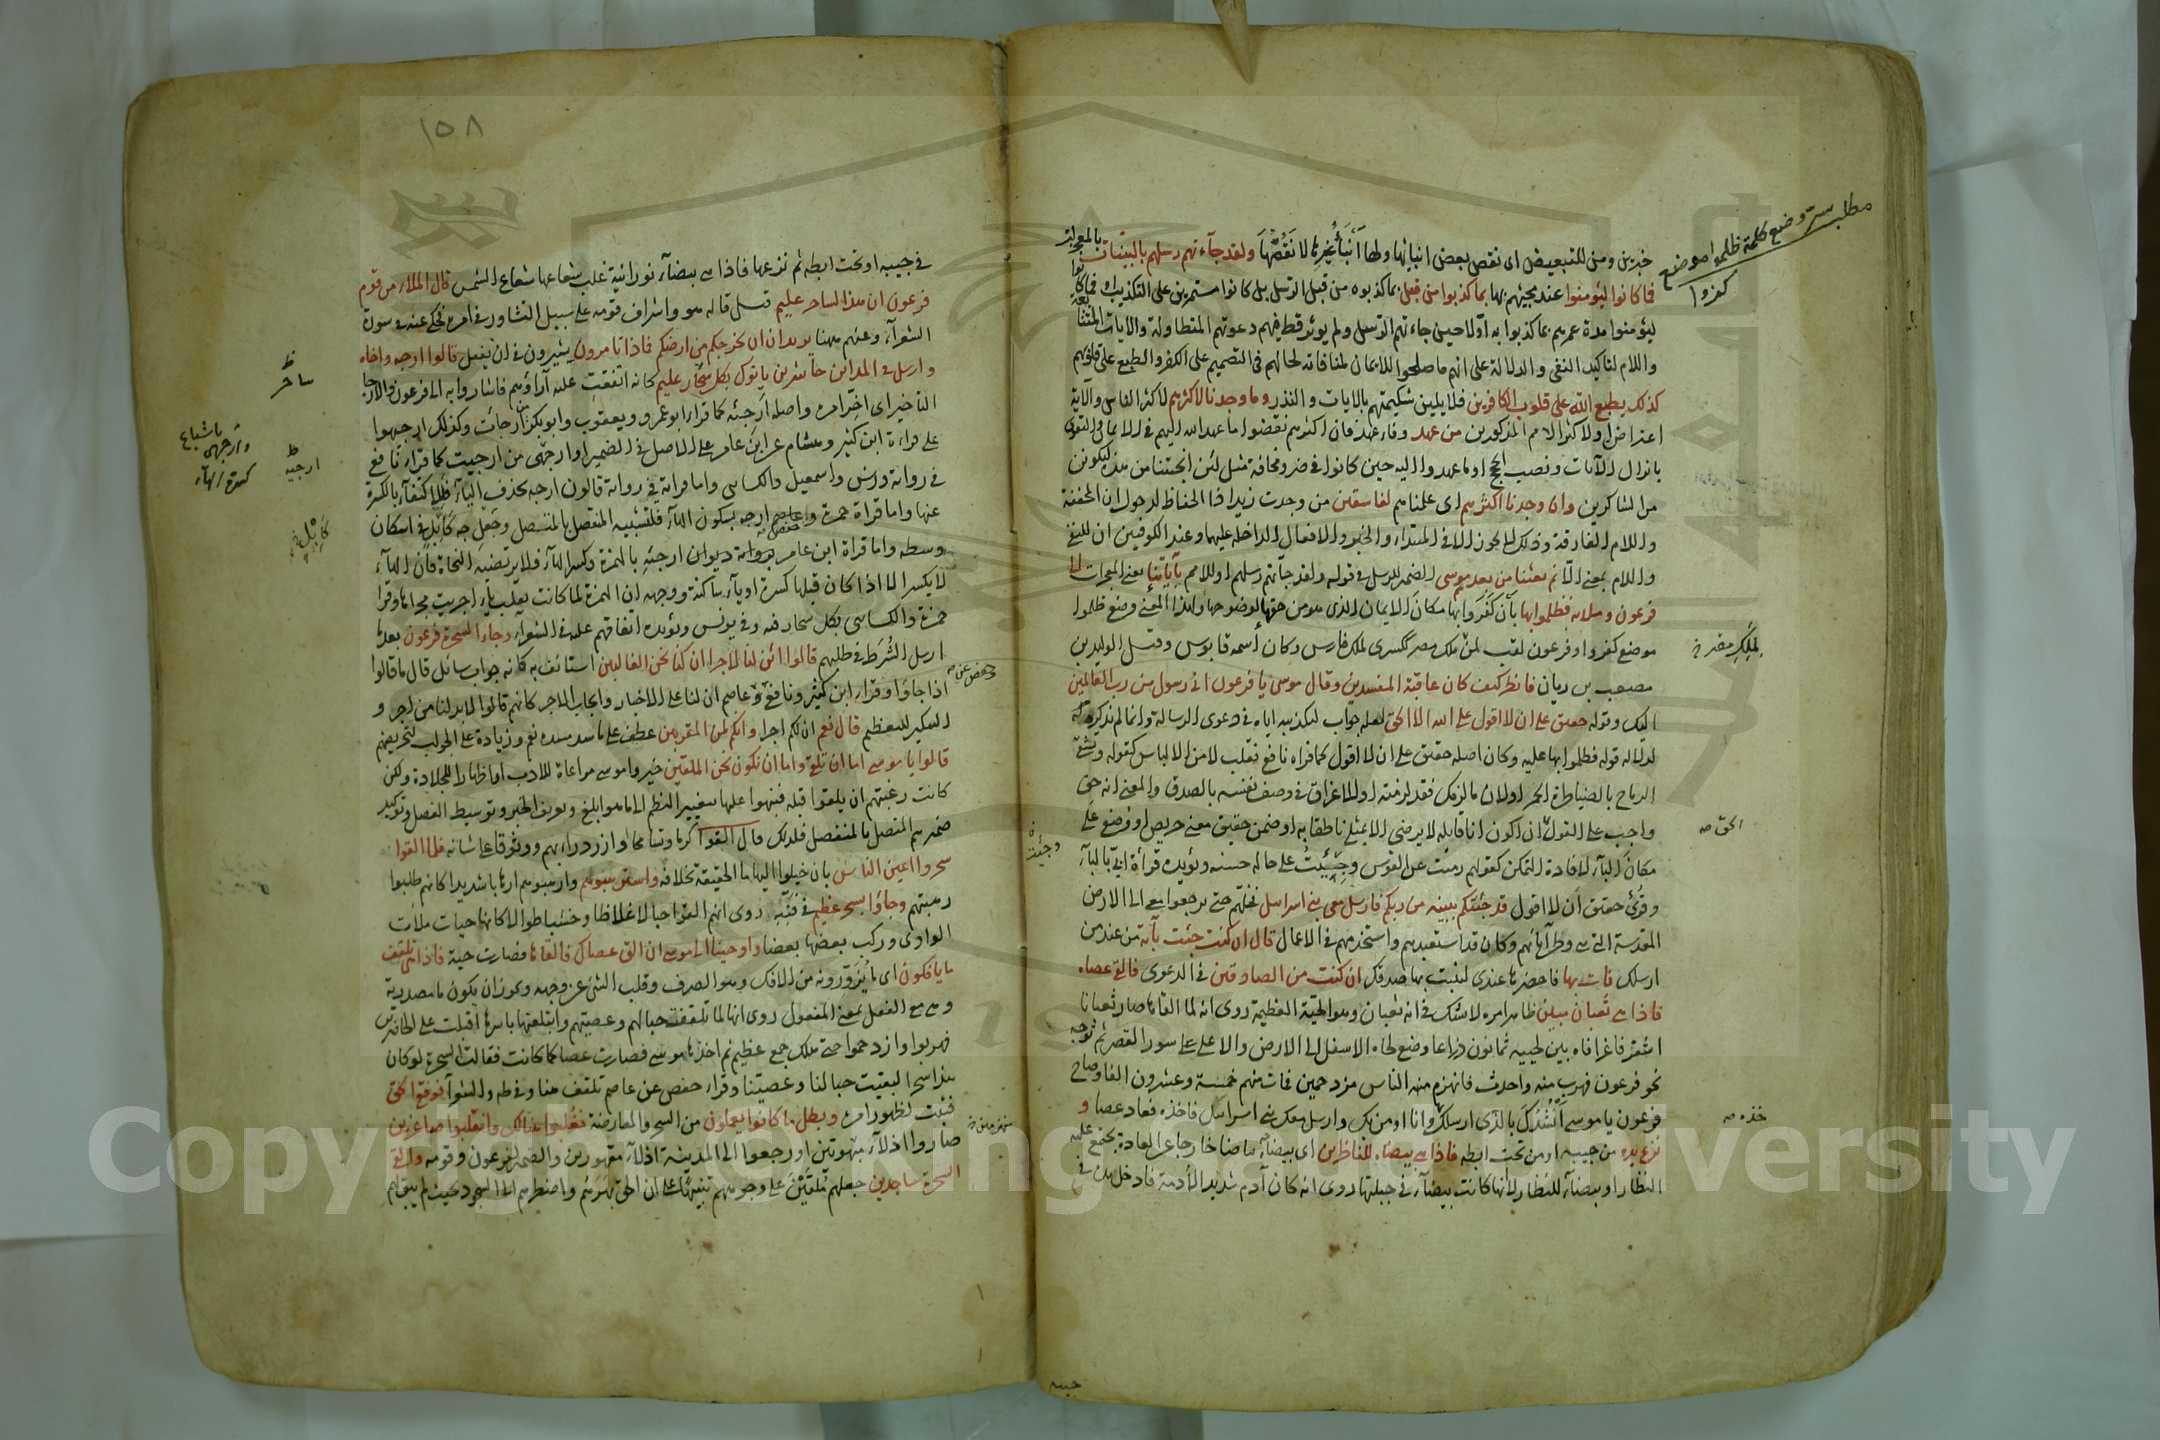 مطلب سر وضع كلمة ظلموا موضع
كفروا
خبرين ومن للتبعيض اى نقص بعض انبائها ولها أَنْبَاءٌ غيرها لا نَقُصُّهَا ولقد جآءتهم رسلهم بالبينات بالمعجزات
فما كانوا ليؤمنوا عند مجيئهم بها بما كذبوا من قبل بما كذبوه من قبل الرسل بل كانوا مستمرين على التكذيب او فما كانوا
ليؤمنوا مدة عمرهم بما كذبوا به اولا حين جاءتهم الرسل ولم يوثر قط فيهم دعوتهم المتطاولة والايات المتتابعة
واللام لتأكيد النفى والدلالة على انهم ما صلحوا للايمان لمنافاته لحالهم فى التصميم على الكفر والطبع على قلوبهم
كذلك يطبع الله على قلوب الكافرين فلا يلين شكيمتهم بالايات والنذر وما وجدنا لاكثرهم لاكثر الناس والآية
اعتراض او لاكثر الامم المذكورين من عهد وفاء عهد فان اكثرهم نقضوا ما عهد الله اليهم فى الايمان والتقوى
بانزال الآيات ونصب الحجج او ما عهدوا اليه حين كانوا فى ضر ومخافة مثل لئن انجيتنا من هذه لنكونن
من الشاكرين وان وجدنا اكثرهم اى علمناهم لفاسقين من وجدت زيدا ذا الحفاظ لدخول ان المخففة
واللام الفارقة وذلك لا يجوز الا فى المبتداء والخبر والافعال الداخلة عليهما وعند الكوفيين ان للنفى
واللام بمعنى الّا ثم بعثنا من بعدهم موسى الضمير للرسل فى قوله ولقد جآءتهم رسلهم او للامم بآياتنا يعنى المعجزات الى
فرعون وملائه فظلموا بها بأن كَفَروا بها مكانَ الايمان الذى هو من حقها لوضوحها ولهذا المعنى وضع ظلموا
موضع كفروا وفرعون لقب لمن ملك مصر ككسرى لملك فارس وكان اسمه قابوس وقيل الوليد بن
لِمَلِكِ مصر
مصعب بن ريان فانظر كيف كان عاقبة المفسدين وقال موسى يا فرعون انى رسول من رب العالمين
اليك وقوله حقيق على ان لا اقول على الله الا الحق لعله جواب لتكذيبه اياه فى دعوى الرسالة وانما لم يذكره
لدلالة قوله فظلموا بها عليه وكان اصله حقيق على ان لا اقول كما قراه نافع فقلب لامن الالباس كقوله وتشقى
الرماح بالضياطرة الحمر او لان ما لزمك فقد لزمته او للاغراق فى وصف نفسه بالصدق والمعنى انه حق
واجب على القول ان اكون انا قائله لا يرضى الا بمثلى ناطقا به او ضمن حقيق معنى حريص او وضع على
الحق صح
مكان الباء لافادة التمكن كقولهم رميت على القوس وجِئْتُ على حالة حسنة ويؤيده قرأة ابىّ بالبآء
وقرئ حقيق أن لا اقول قد جئتكم ببينة من ربكم فارسل معى بنى اسرائيل فخلّهم حتى يرجعوا معى الى الارض
المقدسة التى هى وطن آبائهم وكان قد استعبدهم واستخدمهم فى الاعمال قال ان كنت جئت بآية من عند من
ارسلك فات بها فاحضرها عندى لتثبت بها صدقك ان كنت من الصادقين فى الدعوى فالقى عصاه
فاذا هى ثعبان مبين ظاهر امره لا شك فى انه ثعبان وهو الحية العظيمة روى انه لما القاها صار ثعبانا
اشعر فاغرا فاه بين لحييه ثمانون ذراعا وضع لحاه الاسفل الى الارض والاعلى على سور القصر ثم توجه
نحو فرعون فهرب منه واحدث فانهزم منه الناس مزدحمين فمات منهم خمسة وعشرون الفا وصاح
فرعون يا موسى أَنْشُدُكَ بالذى ارسلك وانا اومن بك وارسل معك بنى اسرائيل فاخذه فعاد عصا و
خذه صح
نزع يده من جيبه او من تحت ابطه فاذا هى بيضاء للناظرين اى بيضآء بياضا خارجا عن العادة يجتمع عليه
النظار او بيضآء للنظار لا انها كانت بيضآء فى جبلتها روى انه كان آدم شديد الأدمة فادخل يده فى
جيبه
١٥٨
فى جيبه او تحت ابطه ثم نزعها فاذا هى بيضآء نورانية غلب شعاعها شعاع الشمس قال الملاء من قوم
فرعون ان هذا لساحر عليم قيل قاله هو واشراف قومه على سبيل التشاور فى امره فحكى عنه فى سورة
الشعرآء وعنهم ههنا يريد ان يخرجكم من ارضكم فاذا تامرون يشيرون فى ان يفعل قالوا ارجه واخاه
وارسل فى المداين حاشرين ياتوك بكل سحّار عليم كانه اتفقت عليه آراؤهم فاشاروا به الى فرعون والارجاء
ساحر
التاخير اى اخّر امره واصله ارجئه كما قراء ابو عمرو ويعقوب وابو بكر من ارجات وكذلك ارجهوا
على قراءة ابن كثير وهشام عن ابن عامر على الاصل فى الضمير او ارجهى من ارجيت كما قراء نافع
ارجه
فى رواية ورش واسمعيل والكسائى واما قراته فى رواية قالون ارجه بحذف اليآء فللاكتفآء بالكسرة
عنها واما قراة حمزة وعاصم ارجه بسكون الهآء فلتشبيه المنفصل بالمتصل وجَعْل جِه كَإِبِل فى اسكان
وسطه واما قراة ابن عامر برواية ابن ذكوان ارجئهِ بالهمزة وكسر الهآء فلا يرتضيه النحاة فان الهآء
لا يكسر الا اذا كان قبلها كسرة او يآء ساكنة ووجهه ان الهمزة لما كانت يقلب يآء اجريت مجراها وقرا
حمزة والكسائى بكل سحار فيه وفى يونس ويؤيده اتفاقهم عليه فى الشعرآء وجاء السحرة فرعون بعدما
ارسل الشُرَطَ فى طلبهم قالوا ائن لنا لاجرا ان كنا نحن الغالبين استانف به كانه جواب سائل قال ما قالوا
اذا جاؤا وقراء ابن كثير ونافع وعاصم ان لنا على الاخبار وايجاب الاجر كانهم قالوا لابد لنا من اجر و
التنكير للتعظيم قال نعم ان لكم اجرا وانكم لمن المقربين عطف على ما سد مسده نعم وزيادة على الجواب لتحريضهم
قالوا يا موسى اما ان تلقى واما ان نكون نحن الملقين خيروا موسى مراعاة للادب او اظهارا للجلادة ولكن
كانت رغبتهم ان يلقوا قبله فنبهوا عليها بتغيير النظم الى ما هو ابلغ وتعريف الخبر وتوسيط الفصل وتوكيد
ضميرهم المتصل بالمنفصل فلذلك قال القوا كرما وتسامحا او ازدراء بهم ووثوقا على شانه فلما القوا
سحروا اعين الناس بان خيلوا اليها ما الحقيقة بخلافه واسترهبوهم وارهبوهم ارهابا شديدا كانهم طلبوا
رهبتهم وجاؤا بسحر عظيم فى فنّه روى انهم القوا حبالا غلاظا وخشبا طوالا كانها حيات ملأت
الوادى وركب بعضها بعضا واوحينا الى موسى ان الق عصاك فالقاها فصارت حية فاذا هى تلقف
ما يافكون اى ما يُزَوّرونه من الافك وهو الصرف وقلب الشئ عن وجهه ويجوز ان يكون ما مصدرية
وهى مع الفعل بمعنى المفعول روى انها لما تلقفت حبالهم وعصيهم وابتلعتها باسرها اقبلت على الحاضرين
فهربوا وازدحموا حتى هلك جمع عظيم ثم اخذها موسى فصارت عصا كما كانت فقالت السحرة لو كان
هذا سحرا لبقيت حبالنا وعصيّنا وقراء حفص عن عاصم تلقف هنا وفى طه والشعرآء فوقع الحق
فثبت لظهور امره وبطل ما كانوا يعملون من السحر والمعارضة فغُلبوا هنالك وانقلبوا صاغرين
صاروا اذلآء مبهوتين او رجعوا الى المدينة اذلآء مقهورين والضمير لفرعون وقومه والقى
السحرة ساجدين جعلهم مُلْقَيْنَ على وجوههم تنبيها على ان الحق بهرهم واضطرهم الى السجود بحيث لم يبق لهم